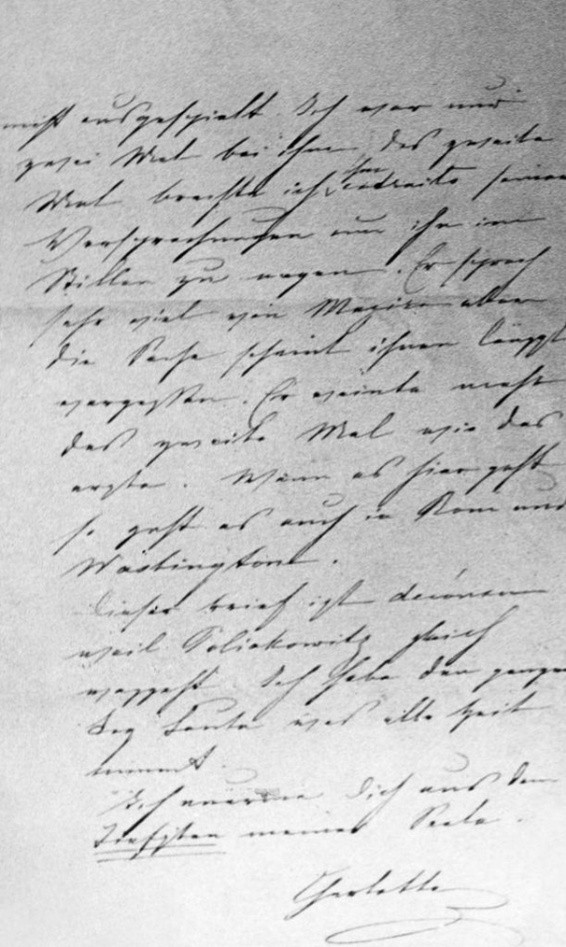 nicht ausgespielt. Ich war nur
zwei Mal bei ihm, das zweite
Mal brachte ich ihm extraits seiner
Versprechungen um ihn im
Stillen zu. Er sprach
sehr viel von Mexico aber
die Sache scheint ihnen längst
vergessen. Er weinte mehr
das zweite Mal wie das
erste. Wenn es hier geht
so geht es auch in Rom und
Washington.
Dieser Brief ist
weil gleich
weggeht. Ich habe den ganzen
Tag Leute was alle Zeit
nimmt.
Ich umarme Dich aus dem
Tiefsten meiner Seele.
Charlotte